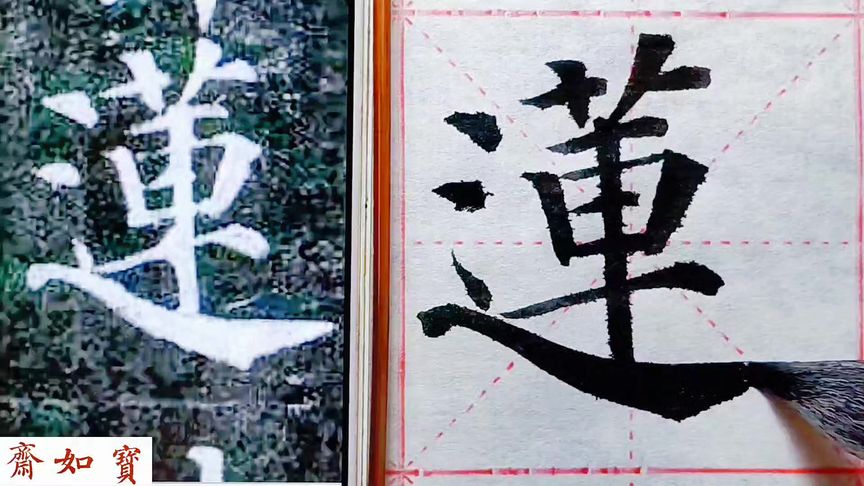 蓮
蓮
寶如齋